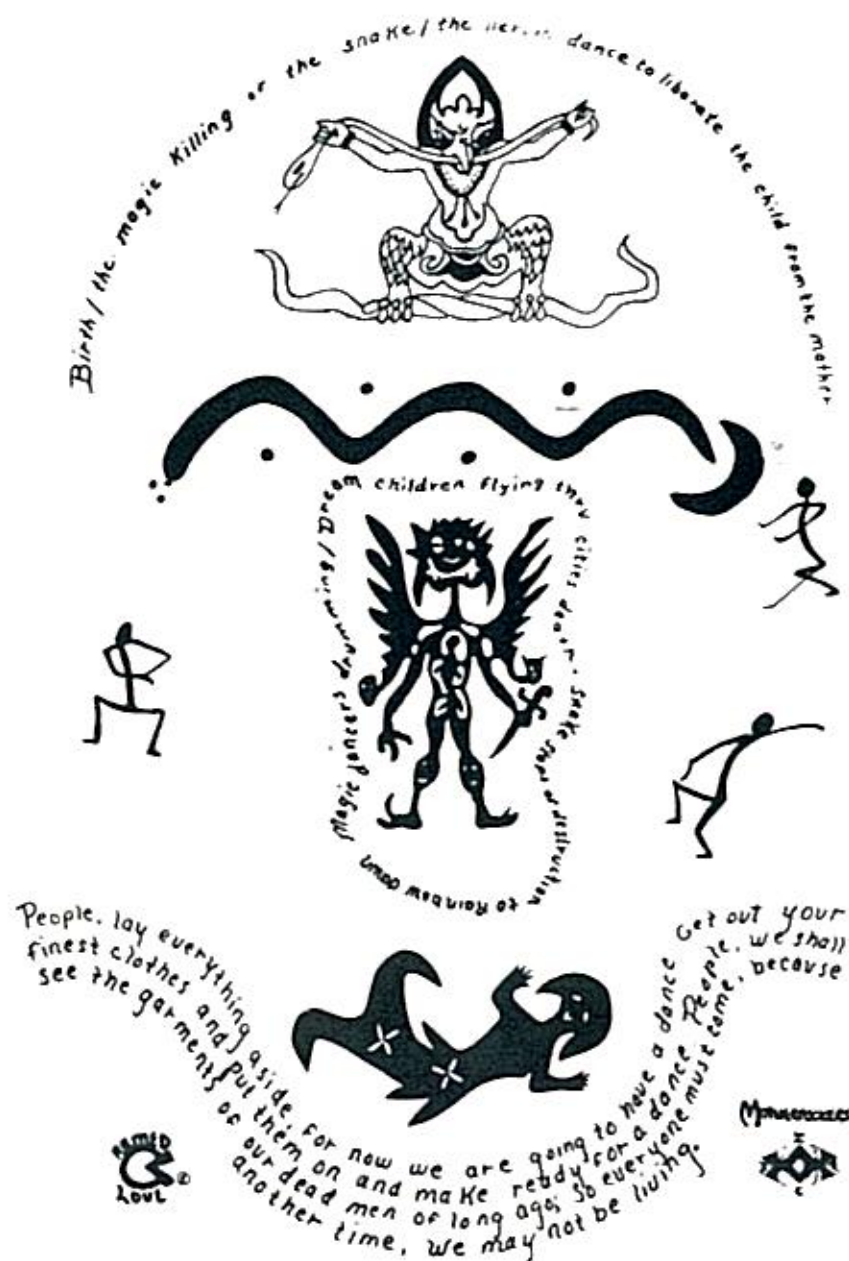 Birth/the magic Killing of the snake/the dance to liberate the child from the mother
Magic dancers drumming/Dream children flying thru cities snake stars of destruction to Rainbow dawn
People, lay everything aside, for now we are going to have a dance Get out your
finest clothes and put them on and make ready for a dance People, we shall
see the garments of our dead men of long ago; so everyone must come, because
another time, we may not be living.